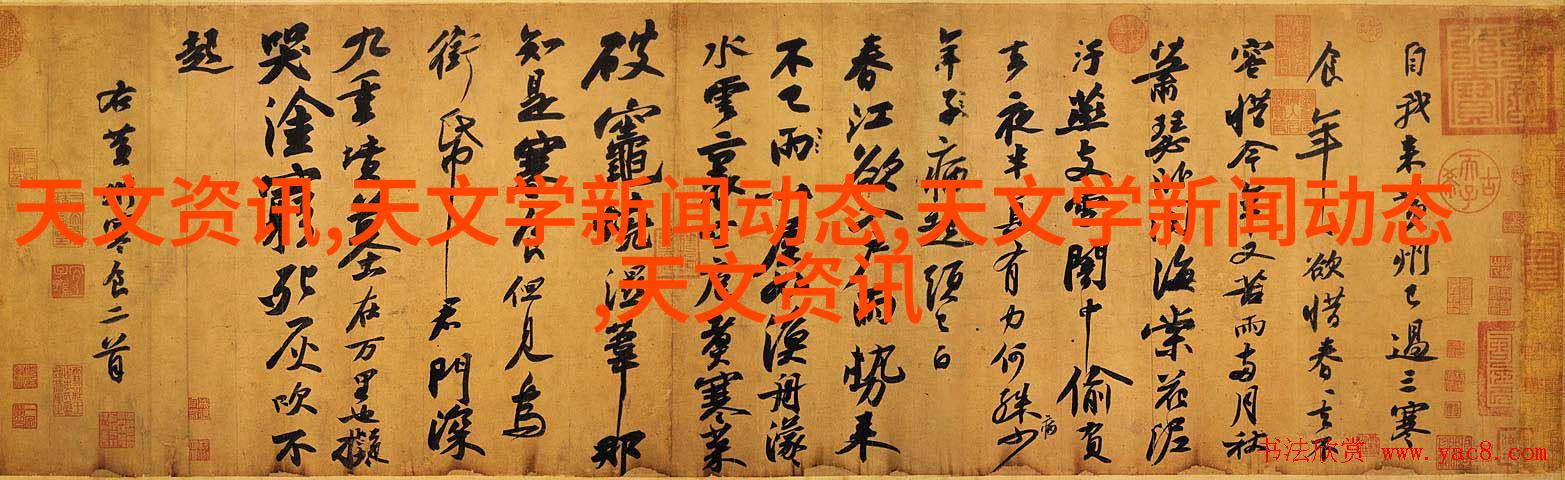 天文资讯,天文学新闻动态,天文学新闻动态
,天文资讯
自我来黄州已過三寒
食年〻欲惜春〻去不
容惜今年又苦雨兩月秋
蕭瑟卧聞海棠花泥
汙燕支雪闇中偷負
去夜半真有力何殊少
病
年子病起頭已白
春江欲入户雨勢来
不已雨小屋如漁舟濛〻
水雲裏空庖煮寒菜
破竈燒濕葦那
知是寒食但見烏
銜帋君門深
九重墳墓在万里也擬
哭塗窮死灰吹不
起
右黄州寒食二首
书法欣赏 www.yac8.com